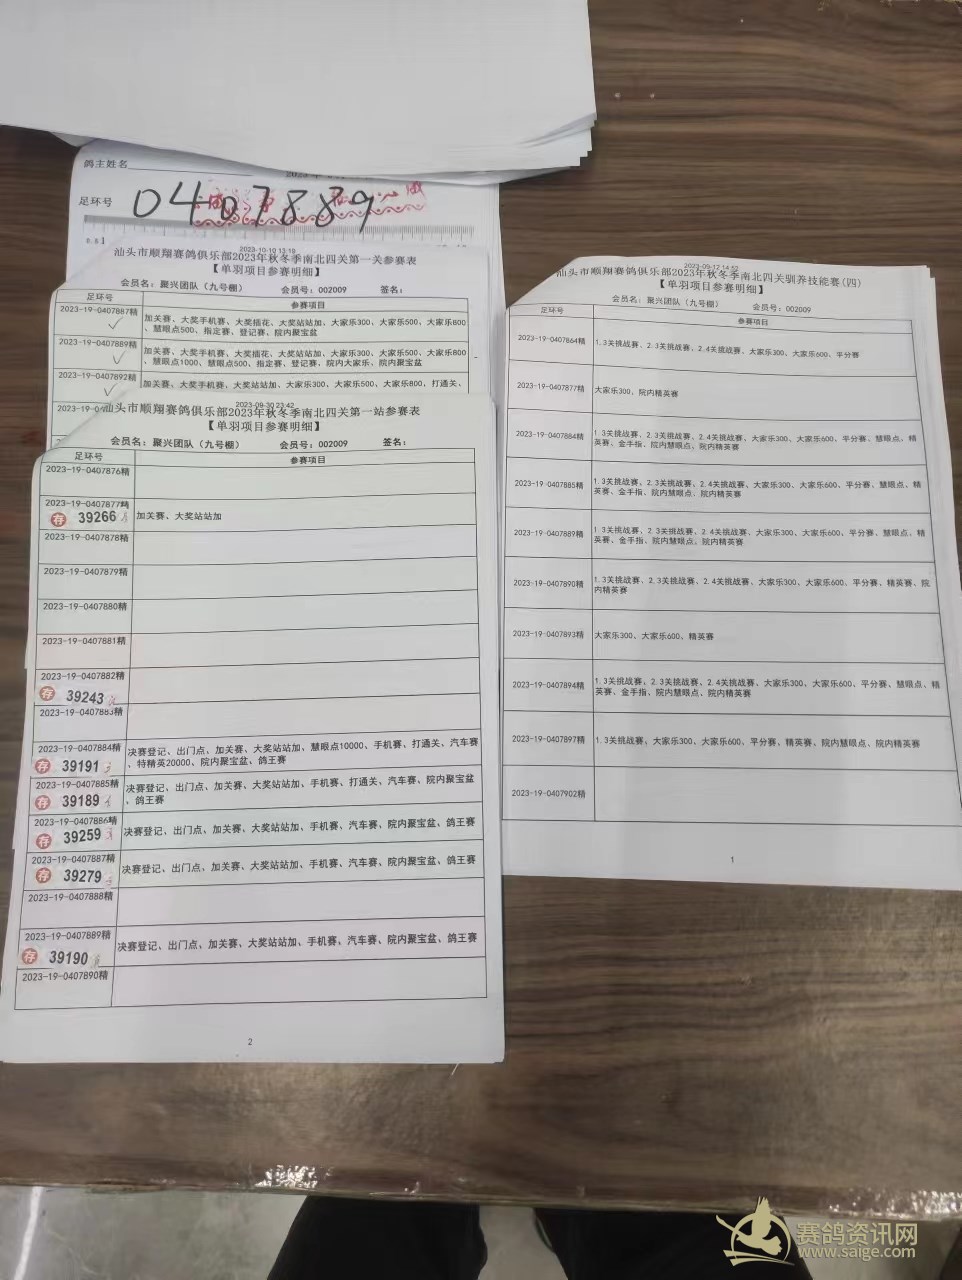 鸽主姓名
足环号 0407889
2023-10-19 13:19
汕头市顺翔赛鸽俱乐部2023年秋冬季南北四关第一关参赛表
【单羽项目参赛明细】
会员名：聚兴团队（九号棚） 会员号：002009 签名：
足环号 参赛项目
2023-19-0407887精 加关赛、大奖手机赛、大奖插花、大奖站站加、大家乐300、大家乐500、大家乐800
、慧眼点500、指定赛、登记赛、院内聚宝盆
2023-19-0407889精 加关赛、大奖手机赛、大奖插花、大奖站站加、大家乐300、大家乐500、大家乐800
、慧眼点1000、慧眼点500、指定赛、登记赛、院内大家乐、院内聚宝盆
2023-19-0407892精 加关赛、大奖手机赛、大奖站站加、大家乐300、大家乐500、大家乐800、打通关、
2023-09-30 23:42
汕头市顺翔赛鸽俱乐部2023年秋冬季南北四关第一站参赛表
【单羽项目参赛明细】
会员名：聚兴团队（九号棚） 会员号：002009 签名：
足环号 参赛项目
2023-19-0407876精
2023-19-0407877精
存 39266 加关赛、大奖站站加
2023-19-0407878精
2023-19-0407879精
2023-19-0407880精
2023-19-0407881精
2023-19-0407882精
存 39243
2023-19-0407883精
2023-19-0407884精 决赛登记、出门点、加关赛、大奖站站加、慧眼点10000、手机赛、打通关、汽车赛
存 39191 、特精英20000、院内聚宝盆、鸽王赛
2023-19-0407885精 决赛登记、出门点、加关赛、大奖站站加、手机赛、打通关、汽车赛、院内聚宝盆
存 39189 、鸽王赛
2023-19-0407886精
存 39259 决赛登记、出门点、加关赛、大奖站站加、手机赛、汽车赛、院内聚宝盆、鸽王赛
2023-19-0407887精
存 39279 决赛登记、出门点、加关赛、大奖站站加、手机赛、汽车赛、院内聚宝盆、鸽王赛
2023-19-0407888精
2023-19-0407889精
存 39190 决赛登记、出门点、加关赛、大奖站站加、手机赛、汽车赛、院内聚宝盆、鸽王赛
2023-19-0407890精
2
2023-09-12 14:52
汕头市顺翔赛鸽俱乐部2023年秋冬季南北四关驯养技能赛(四)
【单羽项目参赛明细】
会员名：聚兴团队（九号棚） 会员号：002009
足环号 参赛项目
2023-19-0407864精 1.3关挑战赛、2.3关挑战赛、2.4关挑战赛、大家乐300、大家乐600、平分赛
2023-19-0407877精 大家乐300、院内精英赛
2023-19-0407884精 1.3关挑战赛、2.3关挑战赛、2.4关挑战赛、大家乐300、大家乐600、平分赛、慧眼点、精
英赛、金手指、院内慧眼点、院内精英赛
2023-19-0407885精 1.3关挑战赛、2.3关挑战赛、2.4关挑战赛、大家乐300、大家乐600、平分赛、慧眼点、精
英赛、金手指、院内慧眼点、院内精英赛
2023-19-0407889精 1.3关挑战赛、2.3关挑战赛、2.4关挑战赛、大家乐300、大家乐600、平分赛、慧眼点、精
英赛、金手指、院内慧眼点、院内精英赛
2023-19-0407890精 1.3关挑战赛、2.3关挑战赛、2.4关挑战赛、大家乐300、大家乐600、平分赛、精英赛、院
内精英赛
2023-19-0407893精 大家乐300、大家乐600、精英赛
2023-19-0407894精 1.3关挑战赛、2.3关挑战赛、2.4关挑战赛、大家乐300、大家乐600、平分赛、慧眼点、精
英赛、金手指、院内慧眼点、院内精英赛
2023-19-0407897精 1.3关挑战赛、大家乐300、大家乐600、平分赛、精英赛、院内慧眼点、院内精英赛
2023-19-0407902精
1
赛鸽资讯网
www.saige.com